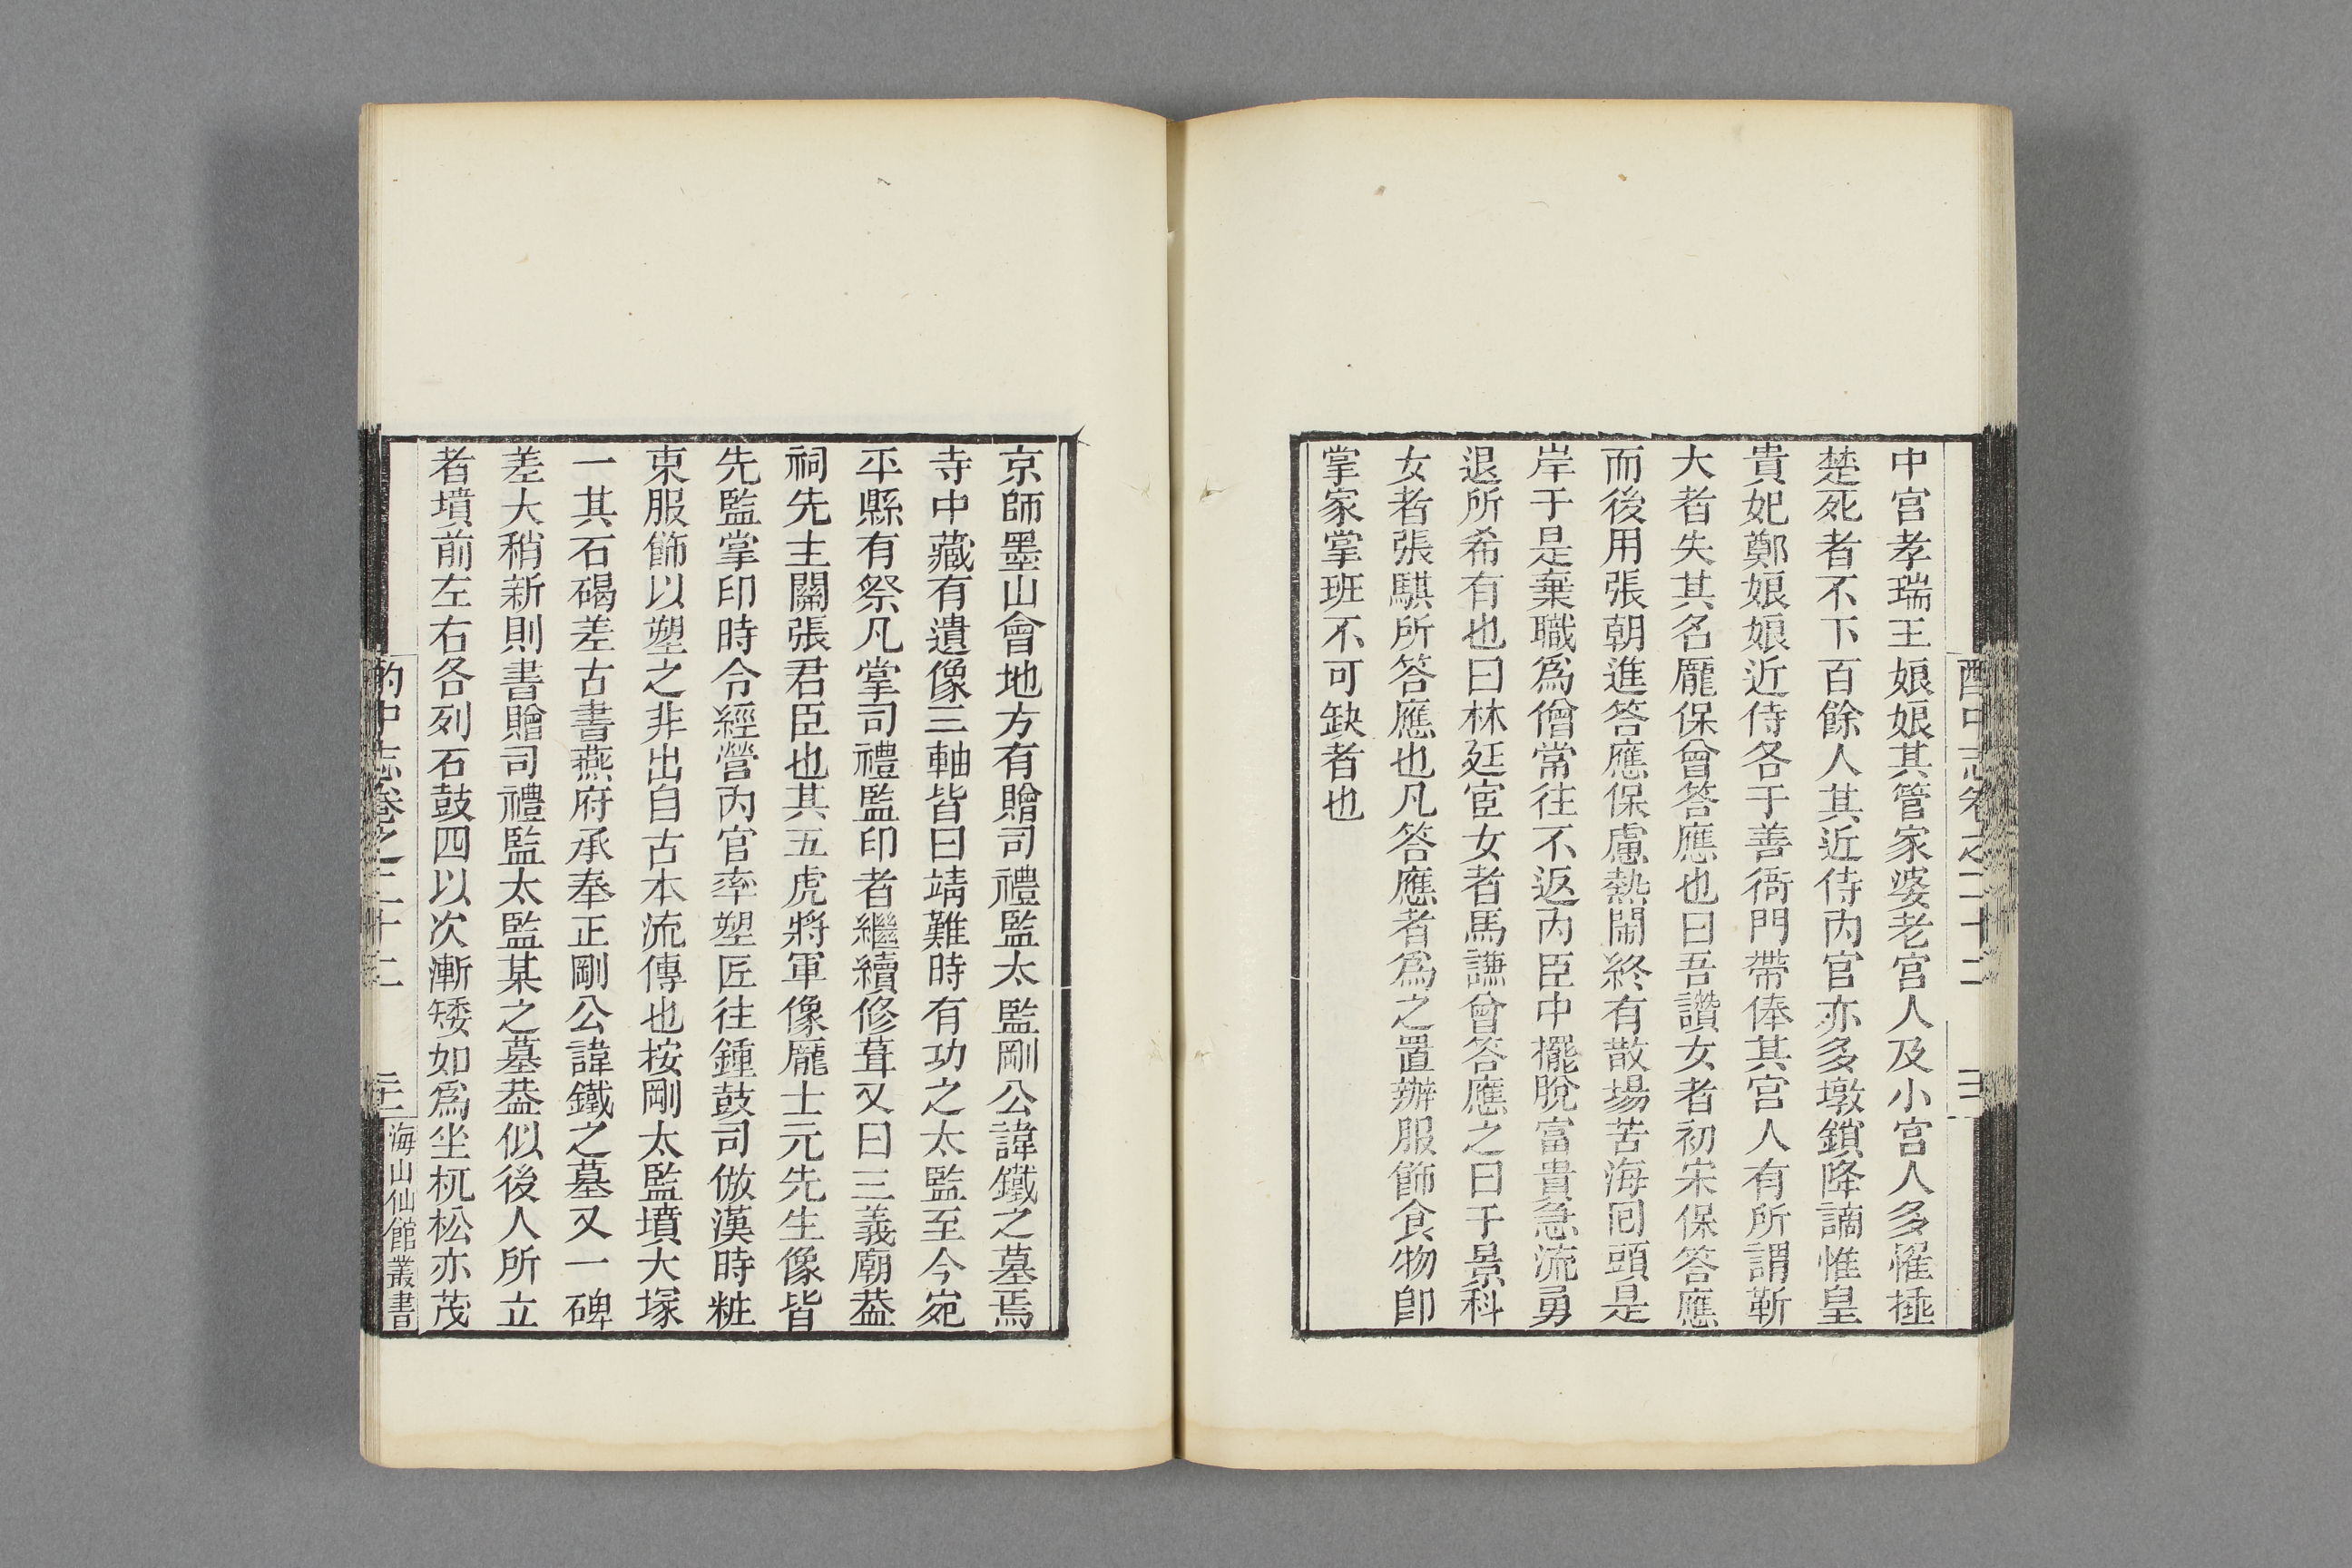 酌中志卷之二十二
中宮孝瑞王娘娘其管家婆老宮人及小宮人多罹捶
楚死者不下百餘人其近侍內官亦多墩鎖降謫惟皇
貴妃鄭娘娘近侍各于善衙門帶俸其宮人有所謂靳
大者失其名龐保曾答應也曰吾讚女者初宋保答應
而後用張朝進答應保慮熱鬧終有散場苦海囘頭是
岸于是棄職為僧常往不返內臣中擺脫富貴急流勇
退所希有也曰林廷宦女者馬謙曾答應之曰于景科
女者張騏所答應也凡答應者為之置辦服飾食物卽
掌家掌班不可缺者也
京師墨山會地方有贈司禮監太監剛公諱鐵之墓焉
寺中藏有遺像三軸皆曰靖難時有功之太監至今宛
平縣有祭凡掌司禮監印者繼續修葺又曰三義廟葢
祠先主關張君臣也其五虎將軍像龐士元先生像皆
先監掌印時令經營內官率塑匠往鍾鼓司倣漢時粧
束服飾以塑之非出自古本流傳也按剛太監墳大塚
一其石碣差古書燕府承奉正剛公諱鐵之墓又一碑
差大稍新則書贈司禮監太監某之墓葢似後人所立
者墳前左右各列石鼓四以次漸矮如為坐杌松亦茂
酌中志卷之二十二
海山仙館叢書